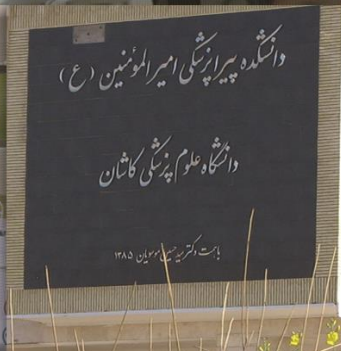 دانشکده پیراپزشکی امیرالمؤمنین (ع)
دانشگاه علوم پزشکی کاشان
باهمت دکتر سید حسین موسویان ۱۳۸۵